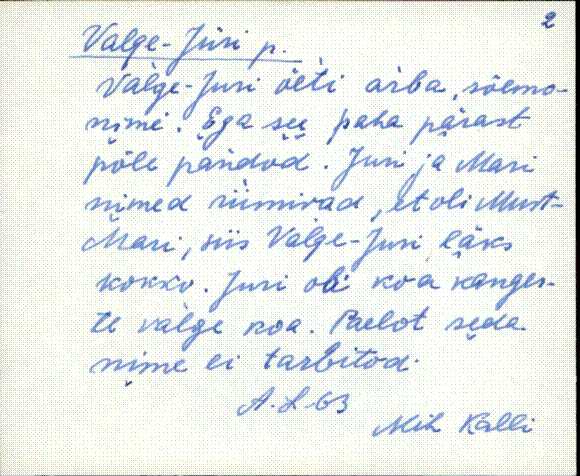 2
Valge-Jüri p.
Valge-Juri öeti arba, sõemo-
nimi. Ega see paha pärast
põle pandod. Juri ja Mari
nimed riimivad, et oli Must-
Mari, siis Valge-Juri läks
kokko. Juri oli koa kanges-
te valge koa. Paelot seda
nime ei tarbitod.
A. L 63
Mih Kalli